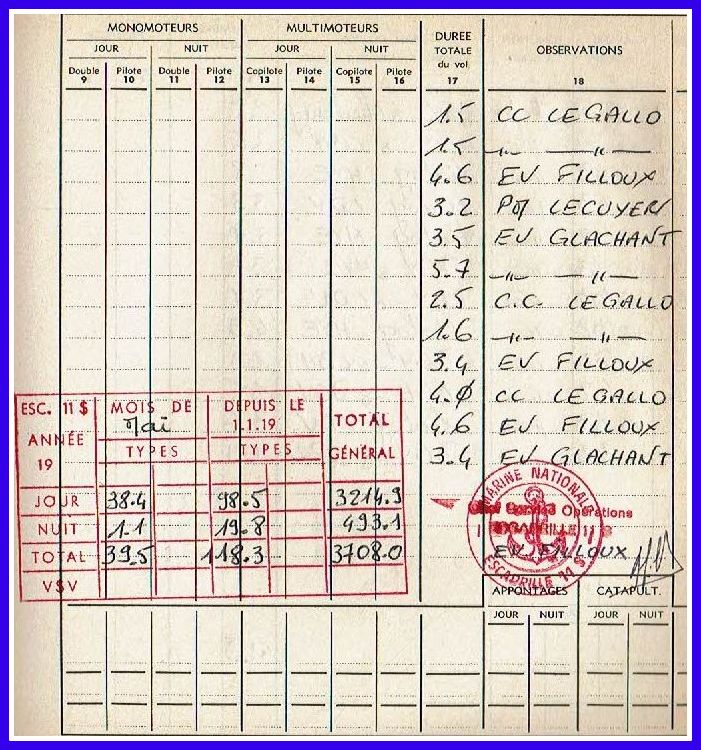 MONOMOTEURS MULTIMOTEURS DUREE TOTALE du vol 17 OBSERVATIONS 18
JOUR NUIT JOUR NUIT
Double 9 Pilote 10 Double 11 Pilote 12 Copilote 13 Pilote 14 Copilote 15 Pilote 16
1.5 CC LEGALLO
1.5 —〃— —〃—
4.6 EV FILLOUX
3.2 LECUYER
3.5 EV GLACHANT
5.7 —〃— —〃—
2.5 C.C. LEGALLO
1.6 —〃— —〃—
3.4 EV FILLOUX
4.0 CC LEGALLO
4.6 EV FILLOUX
3.4 EV GLACHANT
ESC. 11 S MOIS DE Mai DEPUIS LE 1.1.19 TOTAL GÉNÉRAL
ANNÉE 19 TYPES TYPES
JOUR 38.4 98.5 3214.9
NUIT 1.1 19.8 493.1
TOTAL 39.5 118.3 3708.0
VSV
MARINE NATIONALE
Service Opérations
ESCADRILLE 11 S
EV FILLOUX
ESCADRILLE 11 S
APPONTAGES CATAPULT.
JOUR NUIT JOUR NUIT